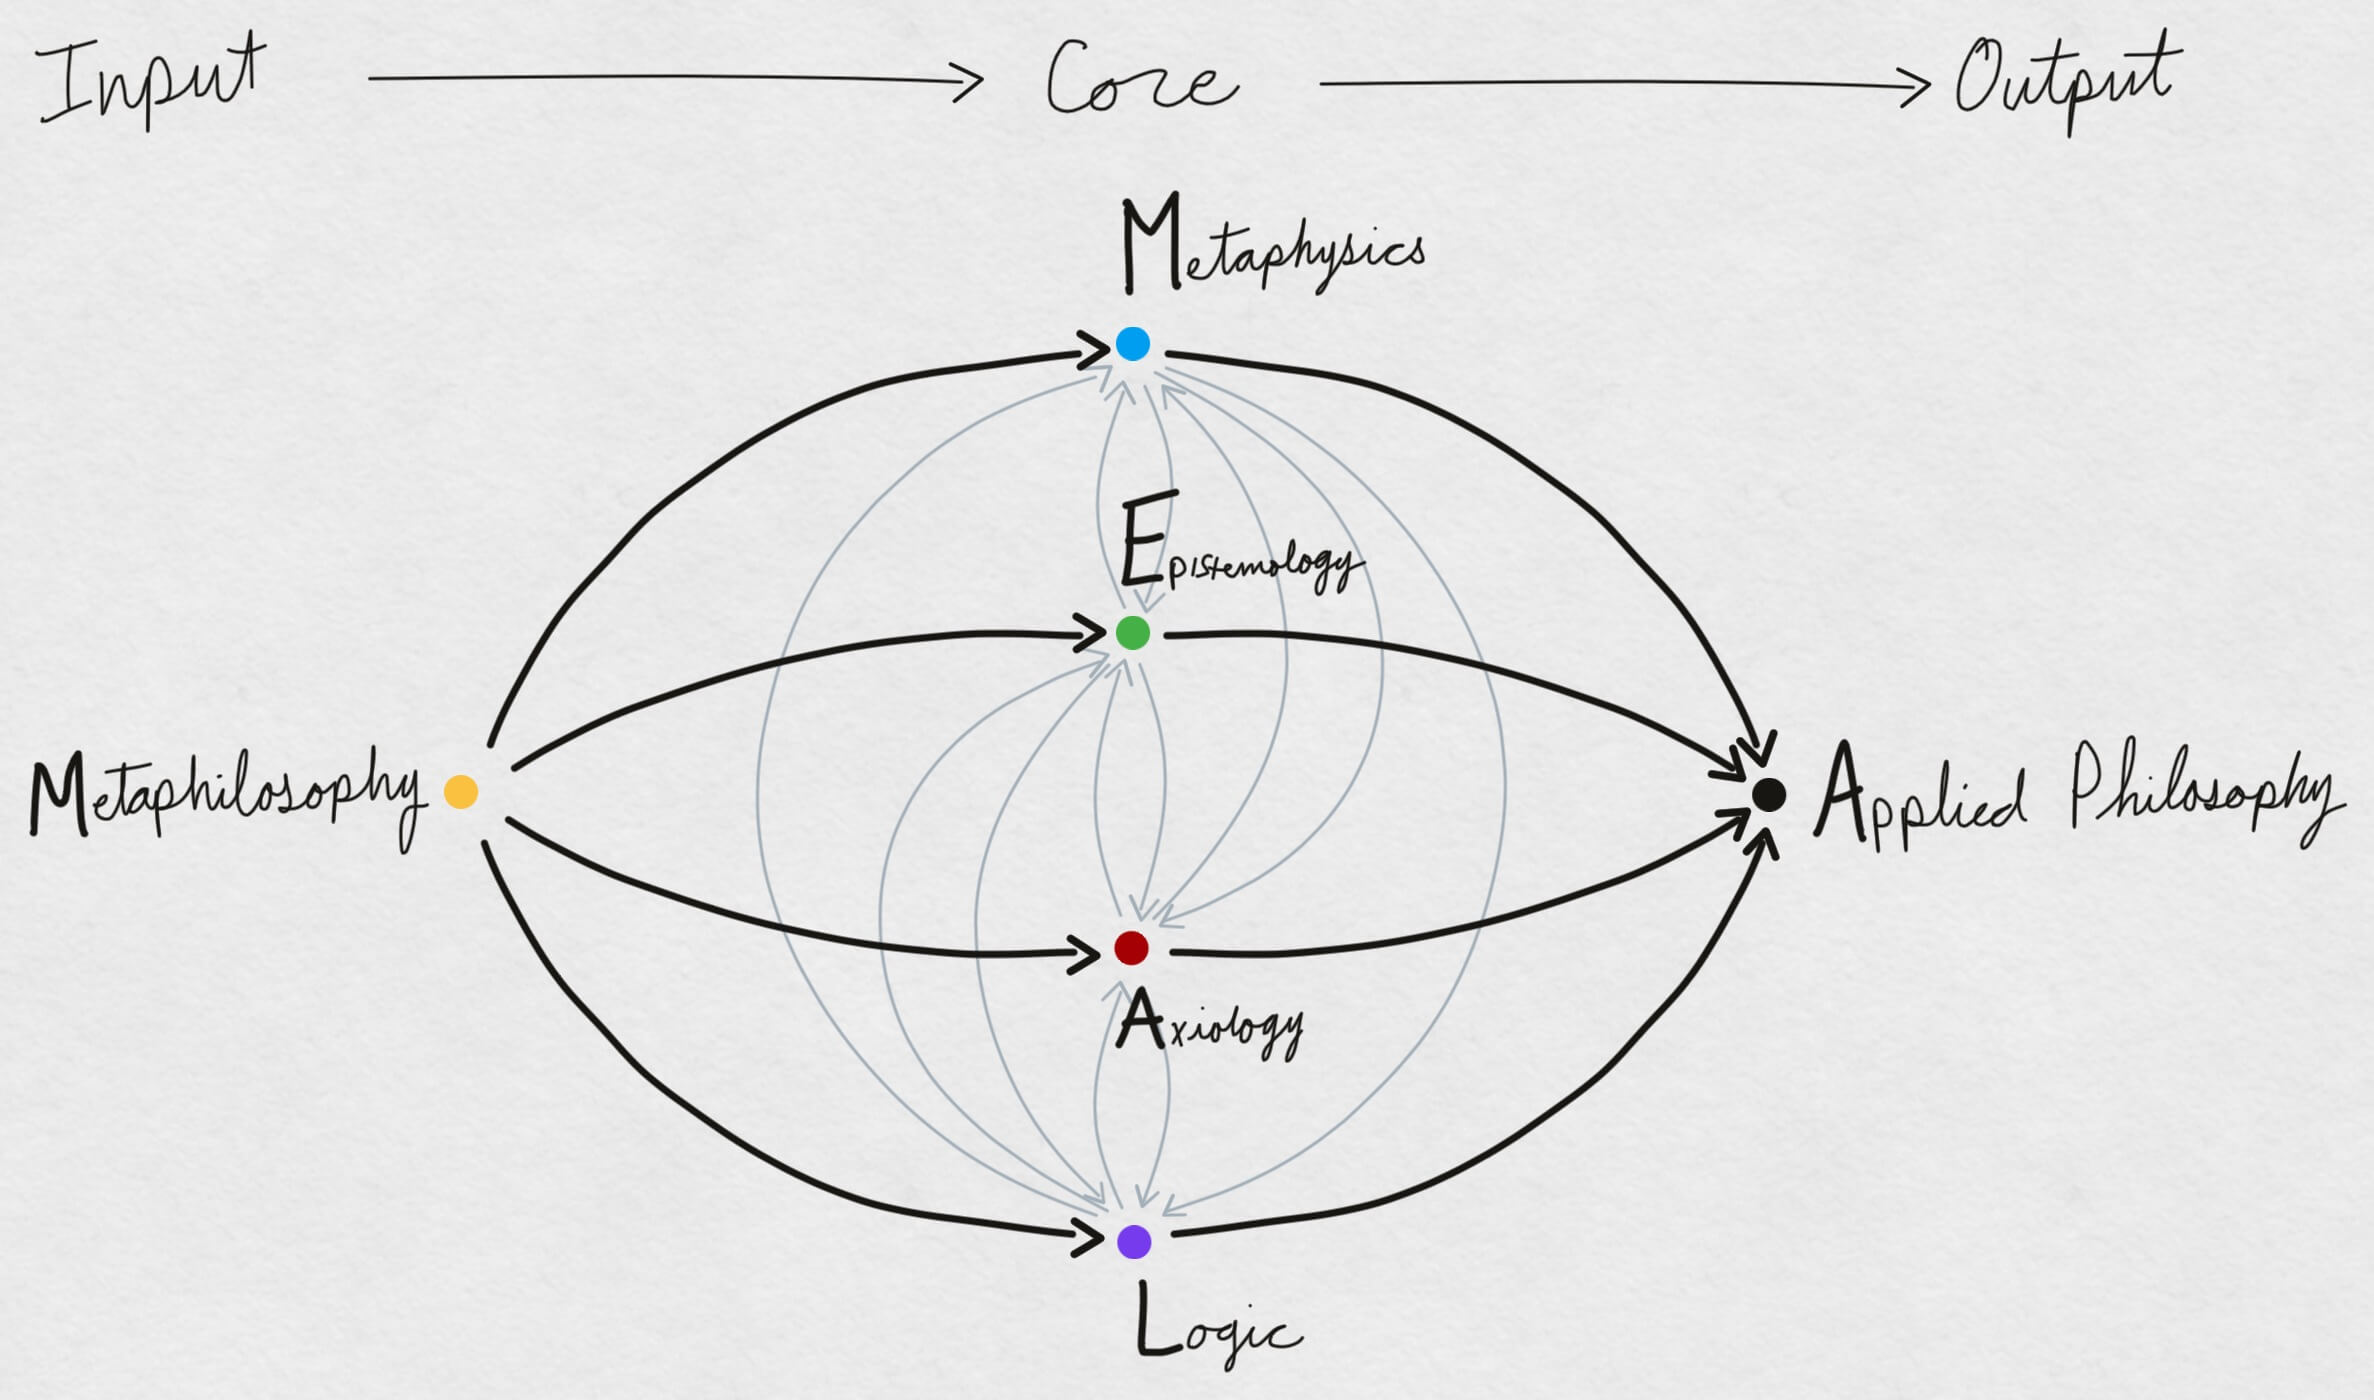 Input Core Output
Metaphysics
Epistemology
Metaphilosophy Applied Philosophy
Axiology
Logic